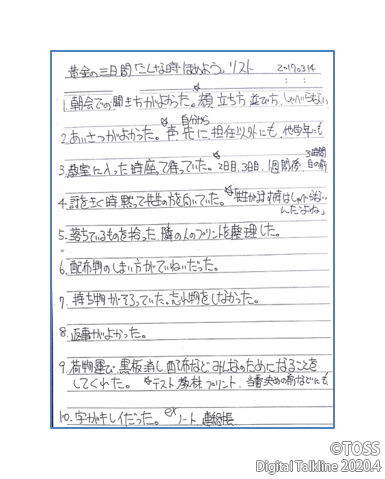 黄金の三日間「こんな時ほめよう」リスト 20170314
1. 朝会での聞き方がよかった。顔、立ち方、並び方、しゃべらない
自分から
2. あいさつがよかった。声、先に、担任以外にも、他学年にも
3. 教室に入った時座って待っていた。2日目、3日目、1週間後、
4. 話をきく時、黙って先生の方を向いていた。「先生が話す時はしゃべらないんだよね」
5. 落ちているものを拾った。隣の人のプリントを整理した。
6. 配布物のしまい方がていねいだった。
7. 持ち物がそろっていた。忘れ物をしなかった。
8. 返事がよかった。
9. 荷物運び、黒板消し、配布など、みんなのためになることを
してくれた。テスト、教材、プリント、当番決めの前などにも
10. 字がキレイだった。ex ノート、連絡帳
©TOSS
Digital Talkline 2020.4